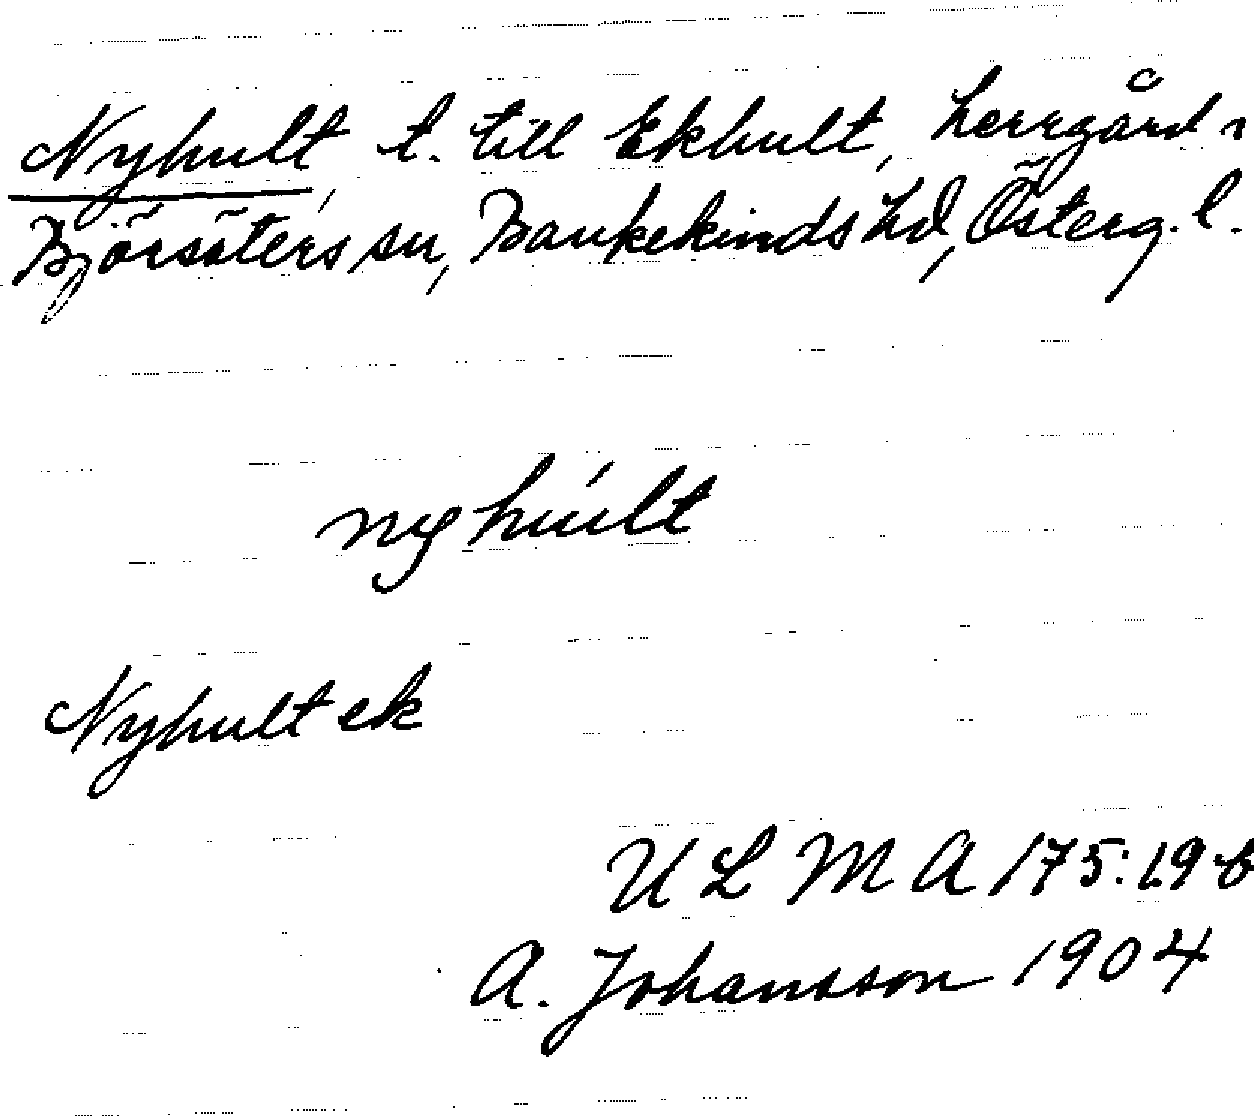 Nyhult, t. till Ekhult, herrgård i
Björsäters sn, Bankekinds hd, Österg. l.
nyhúlt
Nyhult ek
U L M A 175:19 b
A. Johansson 1904